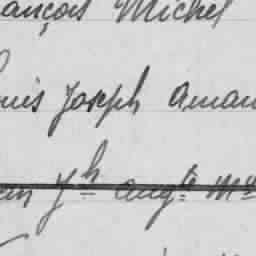 ançois Michel
ouis Joseph Aman
an Jh augte Me